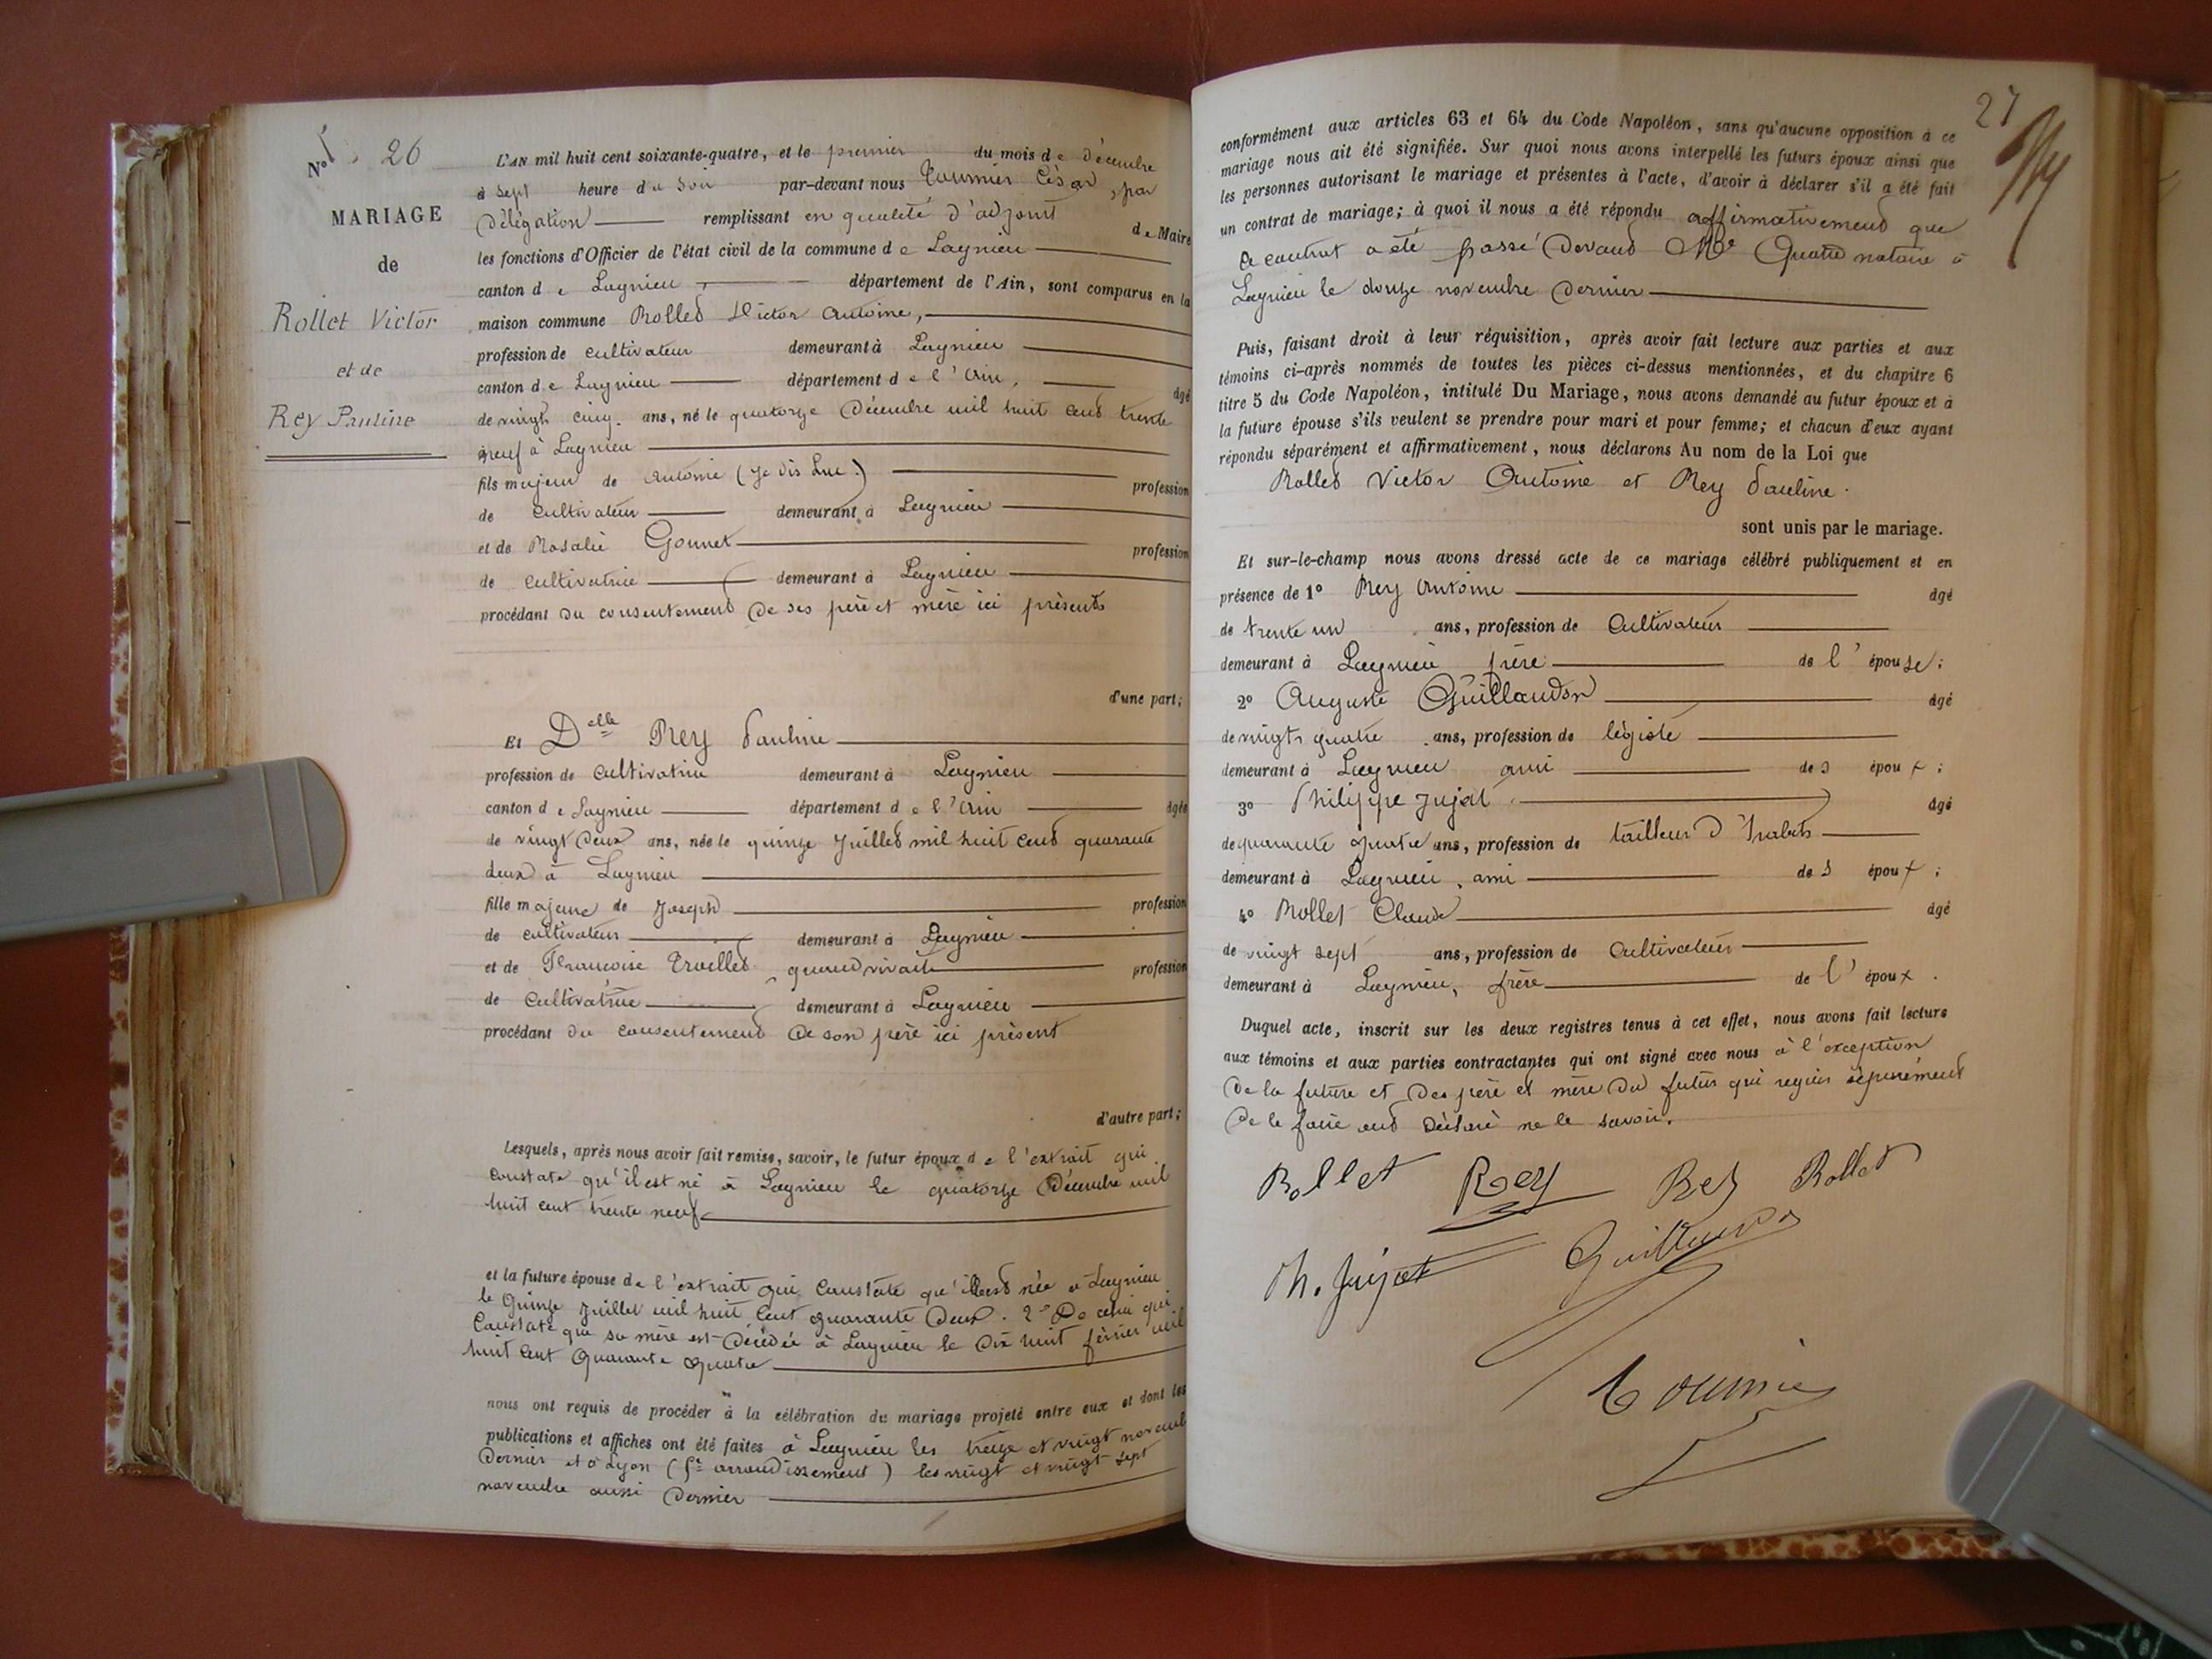 No 26
MARIAGE
de
Rollet Victor
et de
Rey Pauline
L'AN mil huit cent soixante-quatre, et le premier du mois de Décembre
à sept heure du soir par-devant nous Tournier César, par
Délégation remplissant en qualité d'adjoint de Maire
les fonctions d'Officier de l'état civil de la commune de Lagnieu
canton de Lagnieu, département de l'Ain, sont comparus en la
maison commune Rollet Victor Antoine,
profession de cultivateur demeurant à Lagnieu
canton de Lagnieu département de l'Ain, âgé
de vingt cinq ans, né le quatorze Décembre mil huit cent trente
neuf à Lagnieu
fils majeur de Antoine (je dis Luc) profession
de cultivateur demeurant à Lagnieu
et de Rosalie Gonnet profession
de cultivatrice demeurant à Lagnieu
procédant du consentement de ses père et mère ici présents
d'une part;
Et Delle Rey Pauline
profession de cultivatrice demeurant à Lagnieu
canton de Lagnieu département de l'Ain âgée
de vingt deux ans, née le quinze Juillet mil huit cent quarante
deux à Lagnieu
fille majeure de Joseph profession
de cultivateur demeurant à Lagnieu
et de Françoise quand vivait profession
de cultivatrice demeurant à Lagnieu
procédant du consentement de son père ici présent
d'autre part;
Lesquels, après nous avoir fait remise, savoir, le futur époux de l'extrait qui
constate qu'il est né à Lagnieu le quatorze Décembre mil
huit cent trente neuf
et la future épouse de l'extrait qui constate qu'elle est née à Lagnieu
le quinze Juillet mil huit cent quarante deux. 2° De celui qui
constate que sa mère est décédée à Lagnieu le dix huit février mil
huit cent quarante quatre
nous ont requis de procéder à la célébration du mariage projeté entre eux et dont les
publications et affiches ont été faites à Lagnieu les treize et vingt novembre
dernier et à Lyon (arrondissement) les vingt et vingt sept
novembre aussi dernier
27
conformément aux articles 63 et 64 du Code Napoléon, sans qu'aucune opposition à ce
mariage nous ait été signifiée. Sur quoi nous avons interpellé les futurs époux ainsi que
les personnes autorisant le mariage et présentes à l'acte, d'avoir à déclarer s'il a été fait
un contrat de mariage; à quoi il nous a été répondu affirmativement que
ce contrat a été passé devant Me notaire à
Lagnieu le douze novembre dernier
Puis, faisant droit à leur réquisition, après avoir fait lecture aux parties et aux
témoins ci-après nommés de toutes les pièces ci-dessus mentionnées, et du chapitre 6
titre 5 du Code Napoléon, intitulé Du Mariage, nous avons demandé au futur époux et à
la future épouse s'ils veulent se prendre pour mari et pour femme; et chacun d'eux ayant
répondu séparément et affirmativement, nous déclarons Au nom de la Loi que
Rollet Victor Antoine et Rey Pauline.
sont unis par le mariage.
Et sur-le-champ nous avons dressé acte de ce mariage célébré publiquement et en
présence de 1° Rey Antoine âgé
de trente un ans, profession de cultivateur
demeurant à Lagnieu frère de l'épouse;
2° Auguste Guillaudon âgé
de vingt quatre ans, profession de légiste
demeurant à Lagnieu ami des époux;
3° Philippe Jujat âgé
de quarante quatre ans, profession de tailleur d'habits
demeurant à Lagnieu, ami des époux;
4° Rollet Claude âgé
de vingt sept ans, profession de cultivateur
demeurant à Lagnieu, frère de l'époux.
Duquel acte, inscrit sur les deux registres tenus à cet effet, nous avons fait lecture
aux témoins et aux parties contractantes qui ont signé avec nous à l'exception
de la future et des père et mère du futur qui requis séparément
de le faire ont déclaré ne le savoir.
Rollet Rey Rey Rollet
Ph. Jujat
Tournier